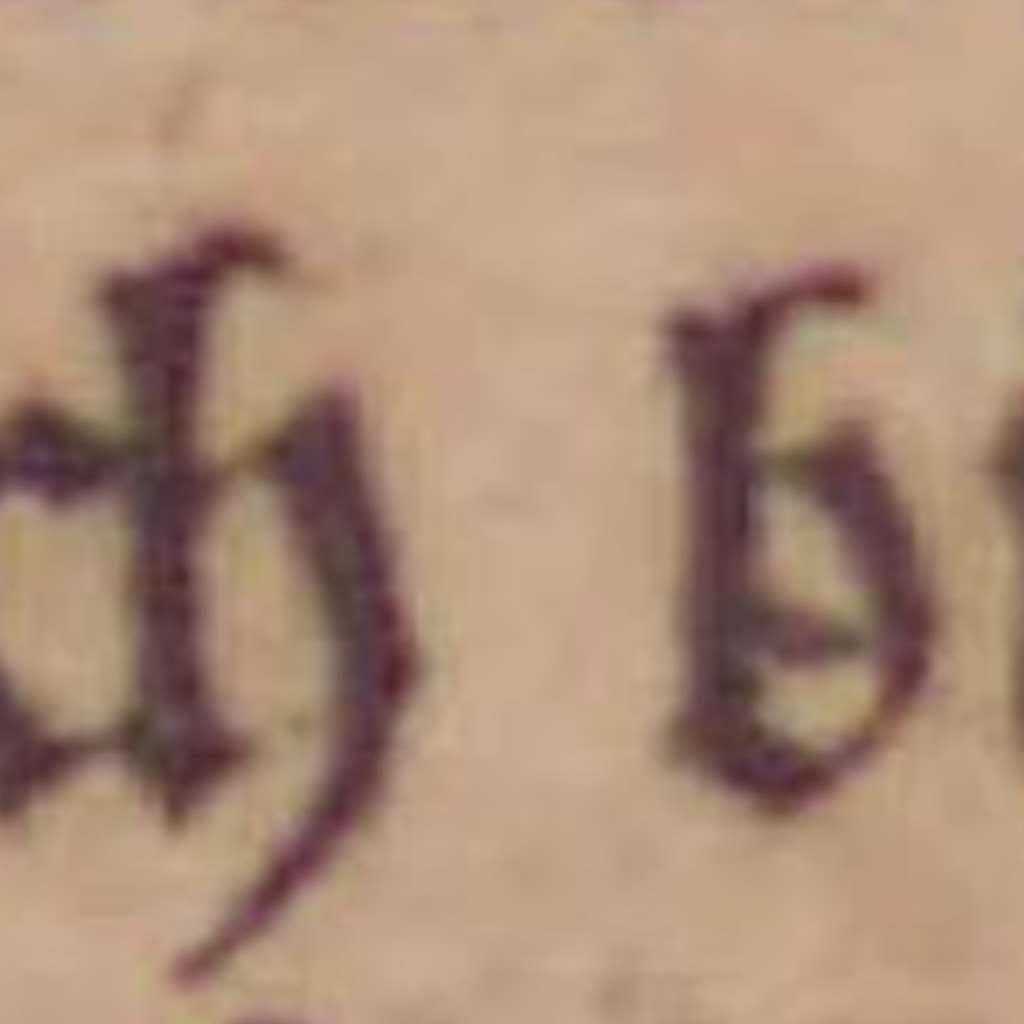 ch b